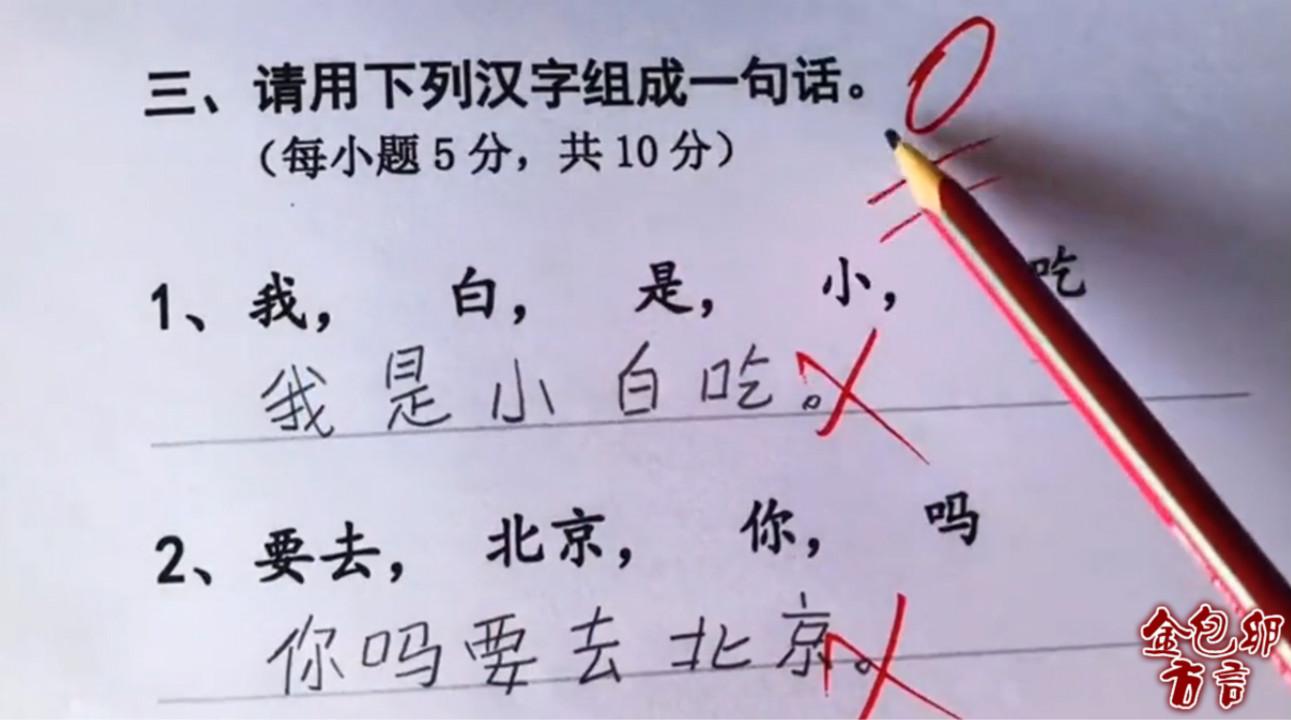 三、请用下列汉字组成一句话。
0
(每小题5分，共10分)
1、我， 白， 是， 小， 吃
我是小白吃。
2、要去， 北京， 你， 吗
你吗要去北京。
金包卵
方言